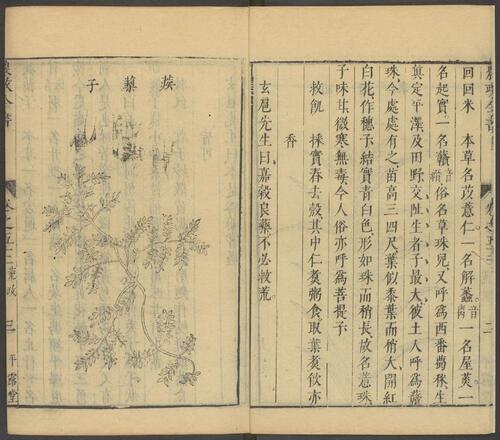 回回米 本草名苡薏仁一名解蠡音禮一名屋菼一
名起實一名䕬音感俗名草珠兒又呼爲西番蜀秫生
真定平澤及田野交阯生者子最大彼土人呼爲䕬
珠今處處有之苗高三四尺葉似黍葉而稍大開紅
白花作穗子結實青白色形如珠而稍長故名薏珠
子味甘微寒無毒今人俗亦呼爲菩提子
救飢 採實舂去殼其中仁煑粥食取葉煑飲亦
香
玄扈先生曰嘉穀良藥不必救荒
蒺藜子
農政全書
卷之五十三 荒政
三
平露堂